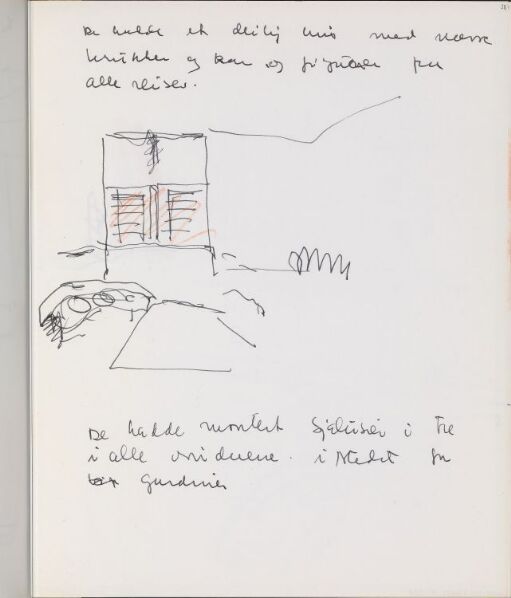 De hadde et deilig hus med
krukker og kar og figurer fra
alle reiser.
De hadde montert sjalusier i tre
i alle vinduene. i stedet for
gardiner